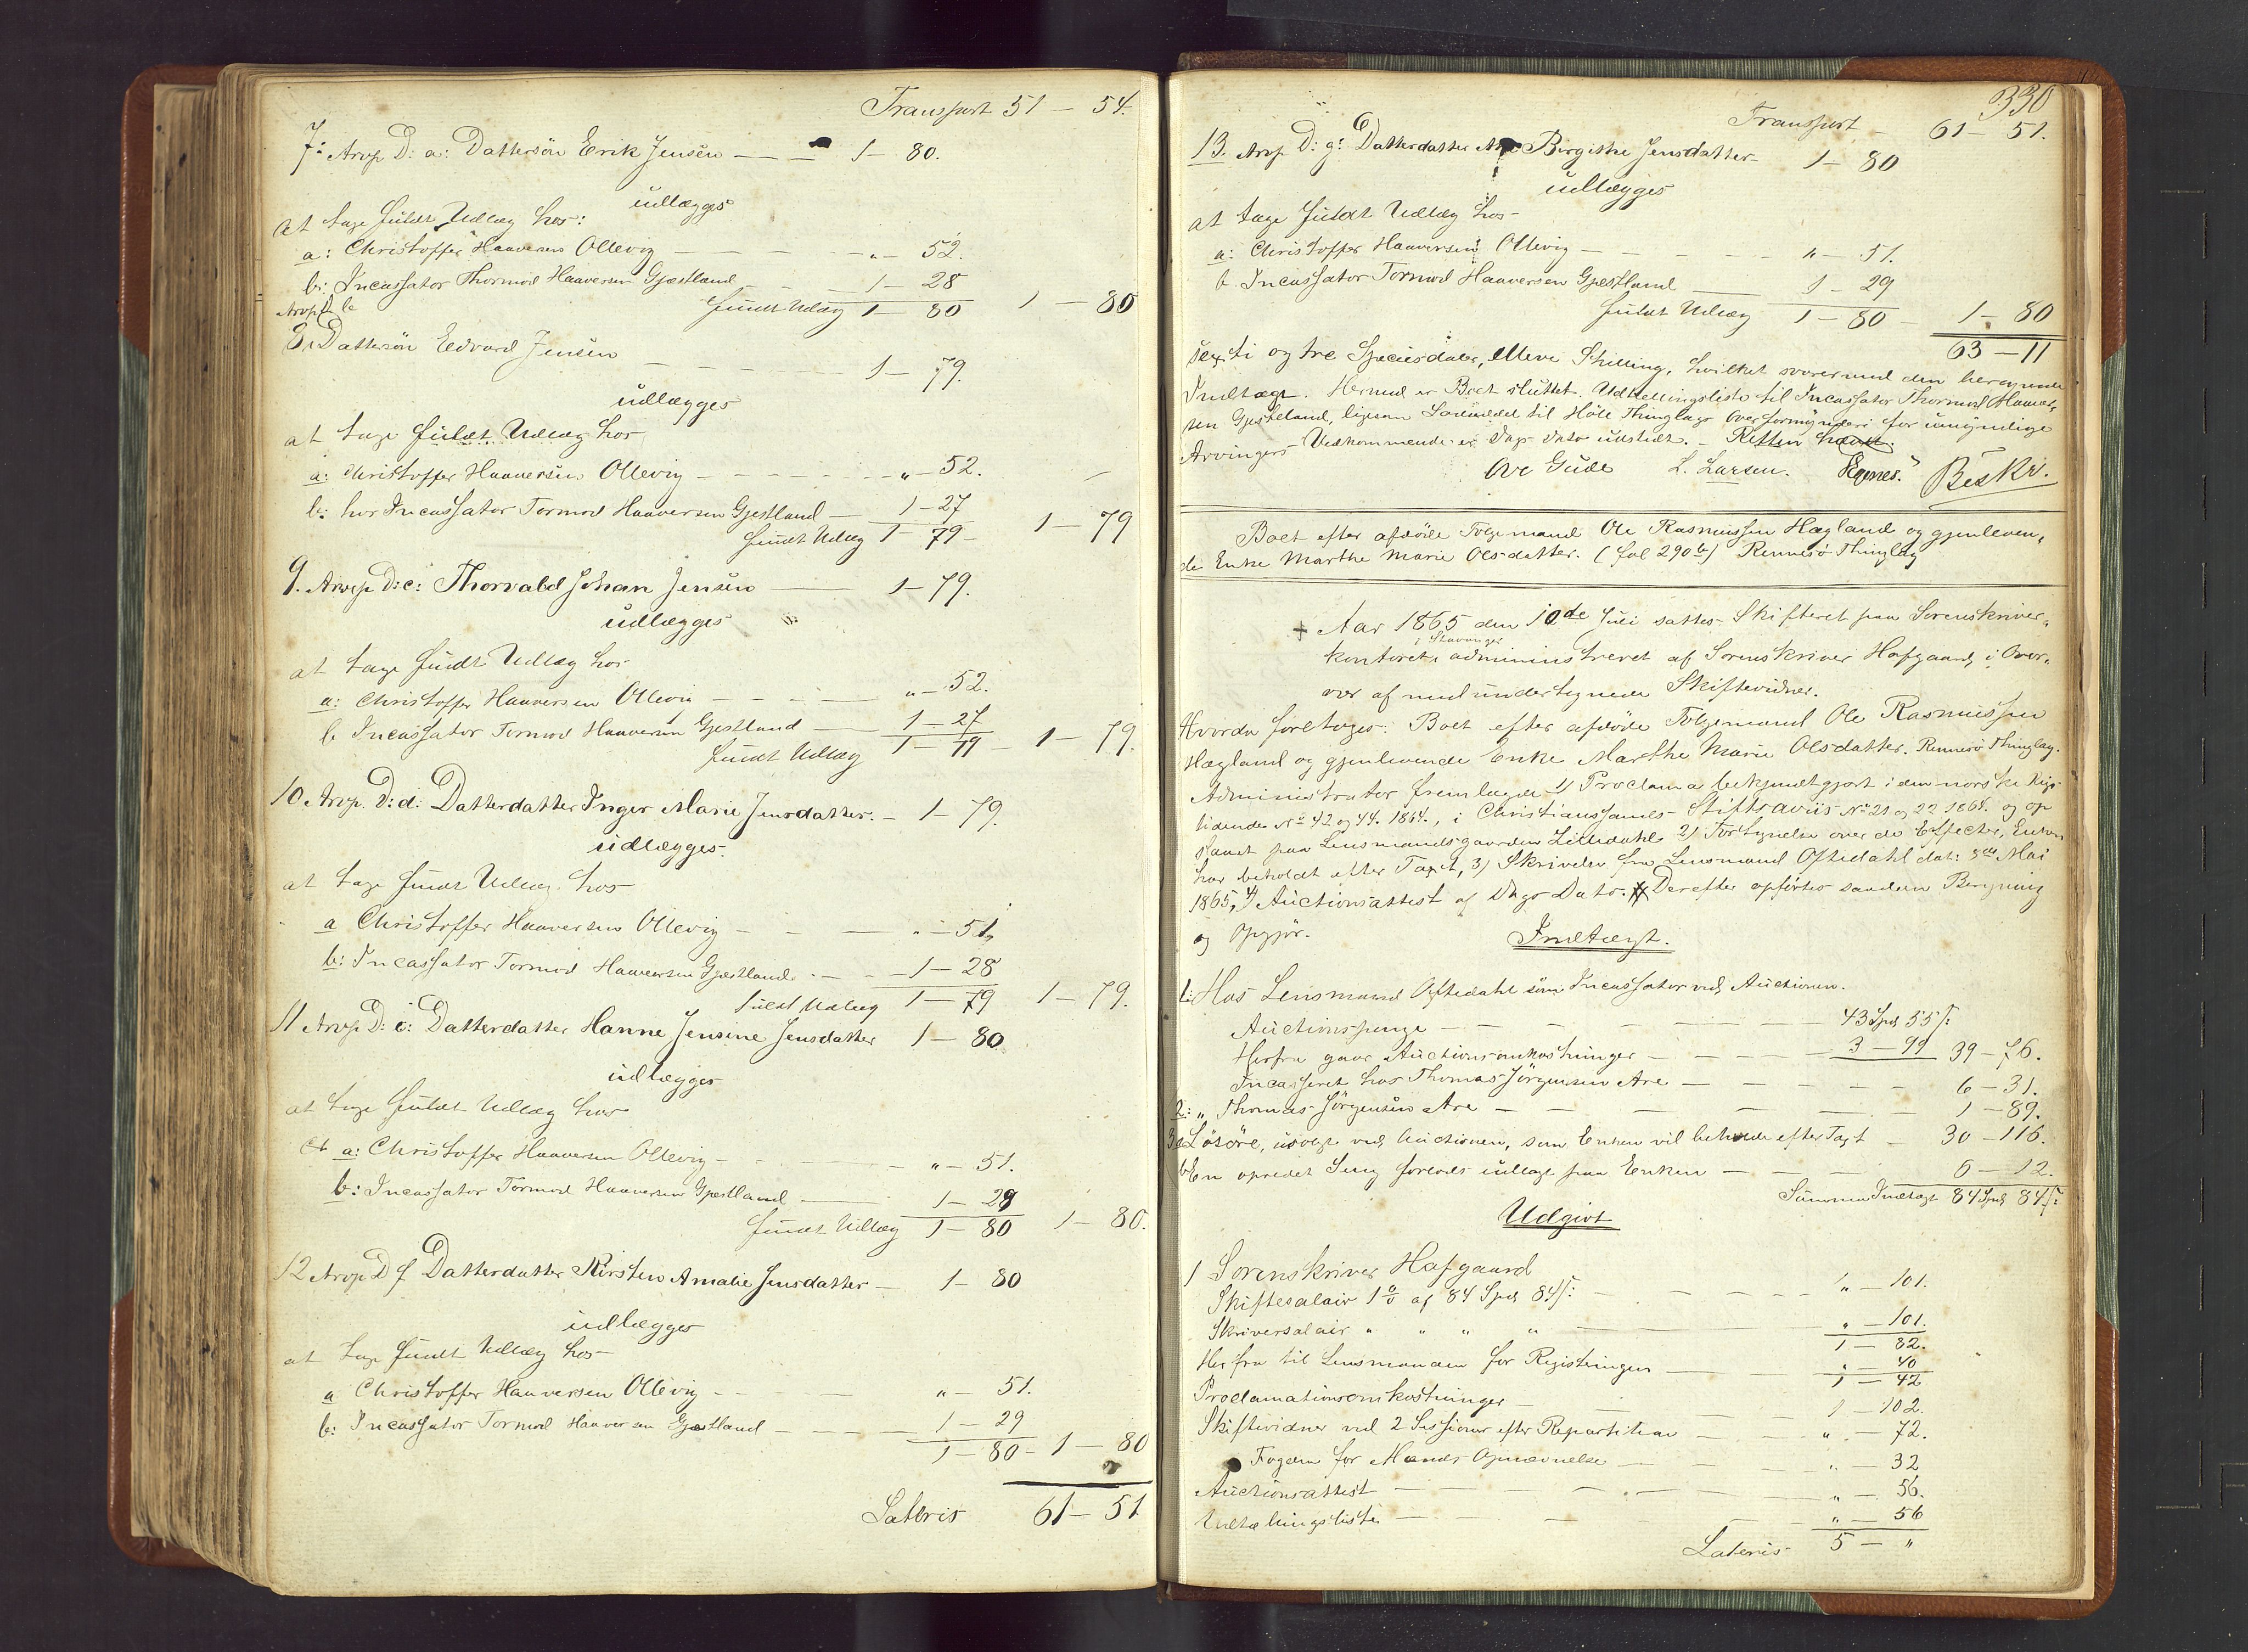 Transport 51 – 54.
7: Arvp D: a: Dattersön Erik Jensen — — 1 – 80.
udlægges
at tage fuldt Udlæg hos:
a: Christoffer Haaversen Ollevig — — — „ – 52.
b: Incassator Thormod Haaversen Gjestland — 1 – 28
fuldt Udlæg 1 – 80 1 – 80
Arvp D b
8: Dattersön Edvard Jensen — — — 1 – 79.
udlægges
at tage fuldt Udlæg hos
a: Christoffer Haaversen Ollevig — — — „ – 52.
b: hos Incassator Tormod Haaversen Gjestland — 1 – 27
fuldt Udlæg 1 – 79 – 1 – 79
9. Arvp D: c: Thorvald Johan Jensen — 1 – 79.
udlægges
at tage fuldt Udlæg hos
a: Christoffer Haaversen Ollevig — — — „ – 52.
b Incassator Tormod Haaversen Gjestland — 1 – 27
fuldt Udlæg 1 – 79 – 1 – 79.
10 Arvp. D: d: Datterdatter Inger Marie Jensdatter. – 1 – 79.
udlægges.
at tage fuldt Udlæg hos
a Christoffer Haaversen Ollevig — — „ – 51
b: Incassator Tormod Haaversen Gjestland. — 1 – 28
fuldt Udlæg 1 – 79 1 – 79.
11 Arvp. D: e: Datterdatter Hanne Jensine Jensdatter 1 – 80
udlægges
at tage fuldt Udlæg hos
a: Christoffer Haaversen Ollevig — — „ – 51.
b: Incassator Tormod Haaversen Gjestland — 1 – 29
fuldt Udlæg 1 – 80 1 – 80.
12 Arvp D f Datterdatter Kirsten Amalie Jensdatter — 1 – 80
udlægges
at tage fuldt Udlæg hos
a Christoffer Haaversen Ollevig — — „ – 51.
b: Incassator Tormod Haaversen Gjestland — — 1 – 29
1 – 80 – 1 – 80
Lateris 61 – 51
330
Transport – 61 – 51.
13. Arvp. D: g: Datterdatter Birgithe Jensdatter – 1 – 80
udlægges
at tage fuldt Udlæg hos –
a: Christoffer Haaversen Ollevig — — — „ – 51.
b. Incassator Tormod Haaversen Gjestland — 1 – 29
fuldt Udlæg 1 – 80 – 1 – 80
63 – 11
sexti og tre Speciedaler, elleve Skilling, hvilket svarer mod den beregnede
Indtægt. Hermed er Boet sluttet. Udtellingsliste til Incassator Thormod Haaver-
sen Gjestland, ligesom til Höle Thinglags Overformynderi for umyndige
Arvingers Vedkommende er Dags Dato udstedt. – Retten hævet.
Ove Gude L. Larsen. Egenes. Beskr.
Boet efter afdöde Folgemand Ole Rasmussen Hægland og gjenleven-
de Enke Marthe Marie Olsdatter. (fol 290 b) Rennesö Thinglag
+ Aar 1865 den 10de Juli sattes Skifteret paa Sorenskriver-
kontoret i Stavanger administreret af Sorenskriver Hofgaard, i Over-
vær af medundertegnede Skiftevidner.
Hvorda foretoges: Boet efter afdöde Folgemand Ole Rasmussen
Hægland og gjenlevende Enke Marthe Marie Olsdatter. Rennesö Thinglag.
Administrator fremlagde 1) Proclama bekjendtgjort i den norske Rigs-
tidende No 42 og 44. 1864, i Christianssands Stiftsavis No 21 og 22 1864. og op
slaaet paa Lensmandsgaarden 2) Fortegnelse over de Effecter, Enken
har beholdt efter Taxt, 3) Skrivelse fra Lensmand Oftedahl dat: 5te Mai
1865, 4) Auctionsattest af Dags Dato. Derefter opförtes saadan Beregning
og Opgjör.
Indtægt.
1: Hos Lensmand Oftedahl som Incassator ved Auctionen.
Auctionspenge — — — — 43 Spd 55 ß:
Herfra gaar Auctionsomkostninger — — — 3 – 99 39 – 76.
Incasseret hos Thomas Jörgensen Are — — — 6 – 31.
2: „ Thomas Jörgensen Are — — — — 1 – 89.
3 a Lösöre, usolgt ved Auctionen, som Enken vil beholde efter Taxt – 30 – 116.
b En opredet Seng forlods udlagt paa Enken — — 6 – 12.
Summa Indtægt 84 Spd 84 ß:
Udgivt
1 Sorenskriver Hofgaard
Skiftesalair 1 % af 84 Spd 84 ß: — — — „ – 101.
Skriversalair „ „ „ „ — — „ – 101.
1 – 82.
Herfra til Lensmanden for Registeringen — — „ – 40
1 – 42
Proclamationsomkostninger — — — 1 – 102.
Skiftevidner ved 2 Sessioner efter Repartition — — „ – 72.
Fogden for Mænds Opnævnelse — — „ – 32
Auctionsattest — — — — „ – 56.
Udtællingsliste — — — — „ – 56
Lateris 5 – „